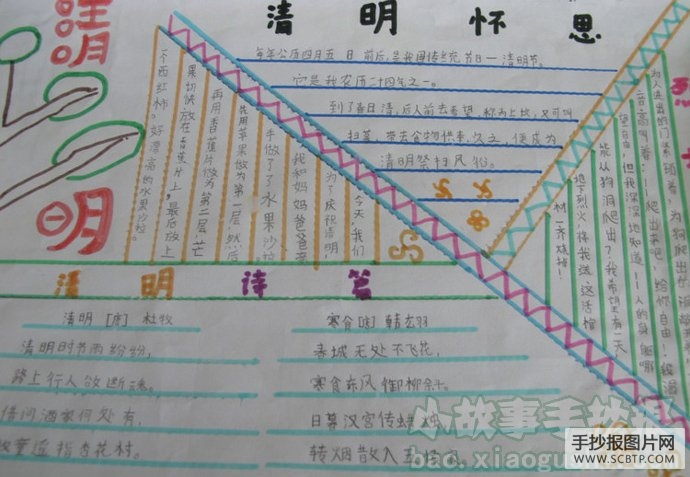 清明怀思
清明
每年公历四月五日前后,是我国传统节日——清明节。
它是我农历二十四气之一。
到了春日清,后人前去看望,称为上坟,又可叫
扫墓,带去食物供奉,久之,便成为
清明祭扫风俗。
今天,我们
为了庆祝清明,
我和妈妈爸爸来
手做了了水果沙拉
先用苹果做为第一层,然后
再用香蕉片做为第二层,芒
果切快放在香蕉片上,最后放上
个西红柿。好漂高的水果沙拉。
为人进出的门紧锁着,为狗爬出
音高叫着:——爬出来吧,给你自由!
望自由,但我深深地知道——人的身
能从狗洞爬出?我希望有一天
地下烈火,将我连这活棺
材一齐烧掉!
清明诗篇
清明[唐]杜牧
清明时节雨纷纷,
路上行人欲断魂。
借问酒家何处有,
牧童遥指杏花村。
寒食[唐]韩玄羽
春城无处不飞花,
寒食东风御柳斜。
日暮汉宫传蜡烛,
转烟散入五侯家。
小故事手抄报
bao.xiaogu
手抄报图片网
WWW.SCBTP.COM